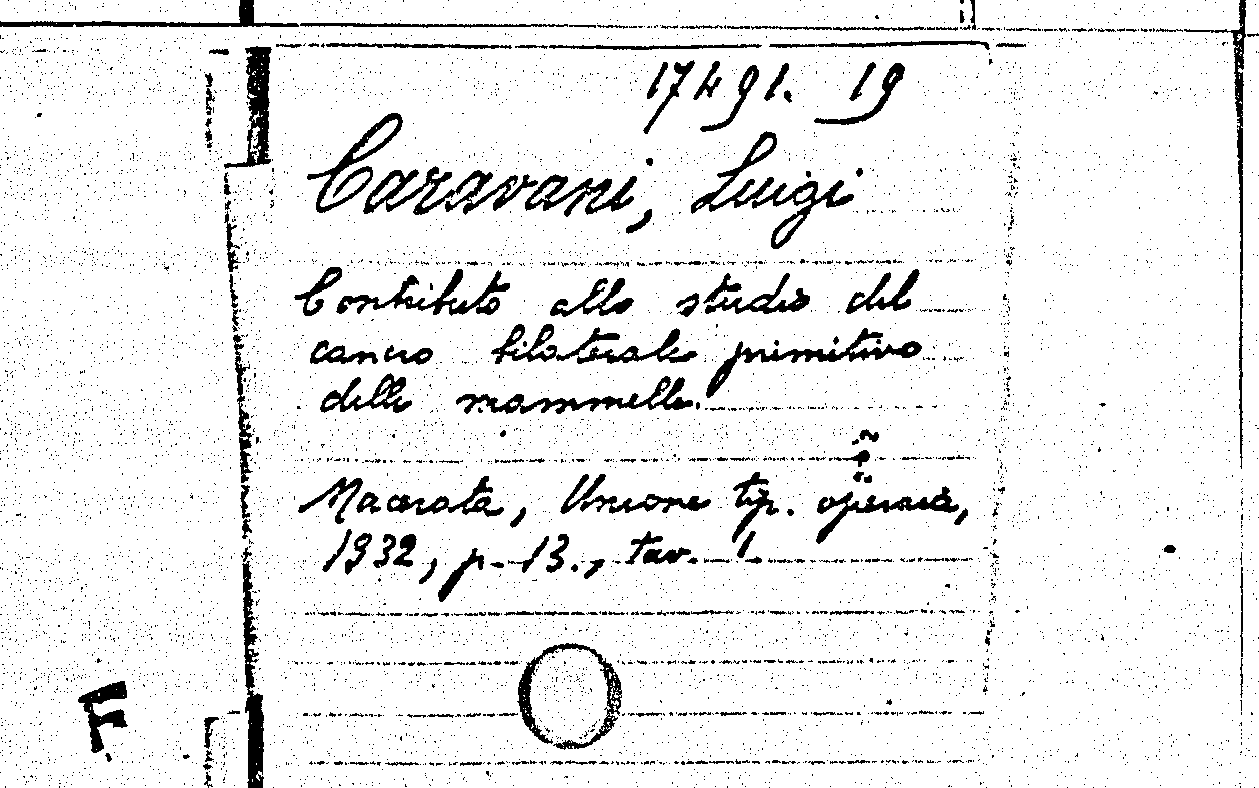 17491. 19
Caravani, Luigi
Contributo allo studio del
cancro bilaterale primitivo
delle mammelle.
Macerata, Unione tip. operaia,
1932, p. 13., tav. 1.
F